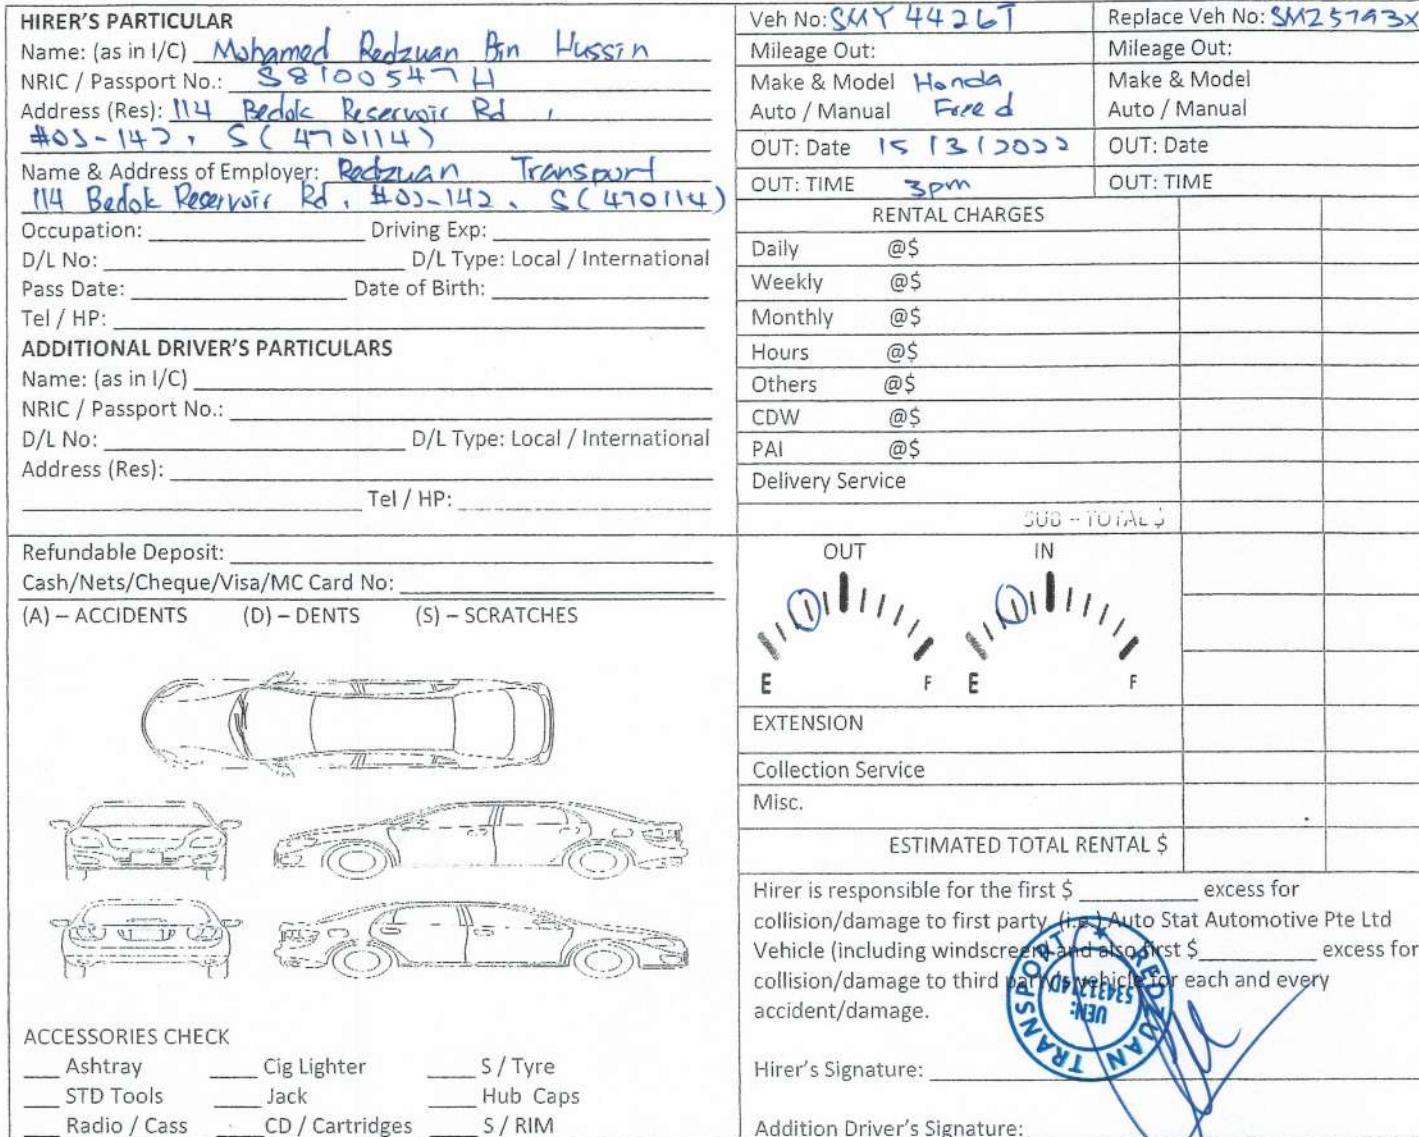 HIRER'S PARTICULAR
Name: (as in I/C) Mohamed Redzuan Bin Hussin
NRIC / Passport No.: S8100547H
Address (Res): 114 Bedok Reservoir Rd ,
#03-142, S(470114)
Name & Address of Employer: Redzuan Transport
114 Bedok Reservoir Rd, #03-142, S(470114)
Occupation: Driving Exp:
D/L No: D/L Type: Local / International
Pass Date: Date of Birth:
Tel / HP:
ADDITIONAL DRIVER'S PARTICULARS
Name: (as in I/C)
NRIC / Passport No.:
D/L No: D/L Type: Local / International
Address (Res):
Tel / HP:
Refundable Deposit:
Cash/Nets/Cheque/Visa/MC Card No:
(A) – ACCIDENTS (D) – DENTS (S) – SCRATCHES
ACCESSORIES CHECK
Ashtray Cig Lighter S / Tyre
STD Tools Jack Hub Caps
Radio / Cass CD / Cartridges S / RIM
Veh No: SMY 4426T Replace Veh No: SMZ5793X
Mileage Out: Mileage Out:
Make & Model Honda Make & Model
Auto / Manual Freed Auto / Manual
OUT: Date 15/3/2022 OUT: Date
OUT: TIME 3pm OUT: TIME
RENTAL CHARGES
Daily @$
Weekly @$
Monthly @$
Hours @$
Others @$
CDW @$
PAI @$
Delivery Service
SUB – TOTAL $
OUT IN
E F E F
EXTENSION
Collection Service
Misc.
ESTIMATED TOTAL RENTAL $
Hirer is responsible for the first $ excess for
collision/damage to first party (i.e.) Auto Stat Automotive Pte Ltd
Vehicle (including windscreen) and also first $ excess for
collision/damage to third party's vehicle for each and every
accident/damage.
REDZUAN TRANSPORT
UEN:
Hirer's Signature:
Addition Driver's Signature: